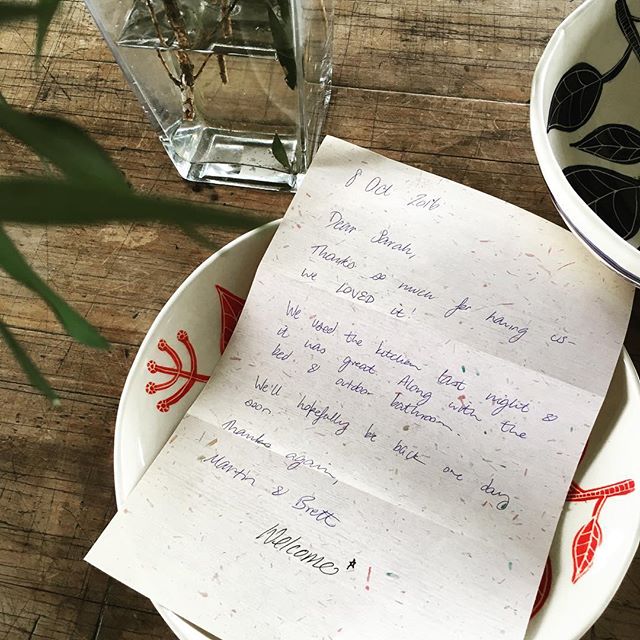 8 Oct 2016
Dear Sarah,
Thanks so much for having us -
we LOVED it!
We used the kitchen last night &
it was great. Along with the
bed & outdoor bathroom.
We'll hopefully be back one day
soon.
Thanks again,
Martin & Brett
Welcome * !